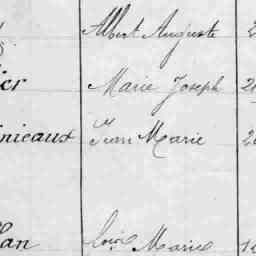 Albert Auguste 2
ier Marie Joseph 2
inicaux Jean Marie 2
lan Louis Marie 1